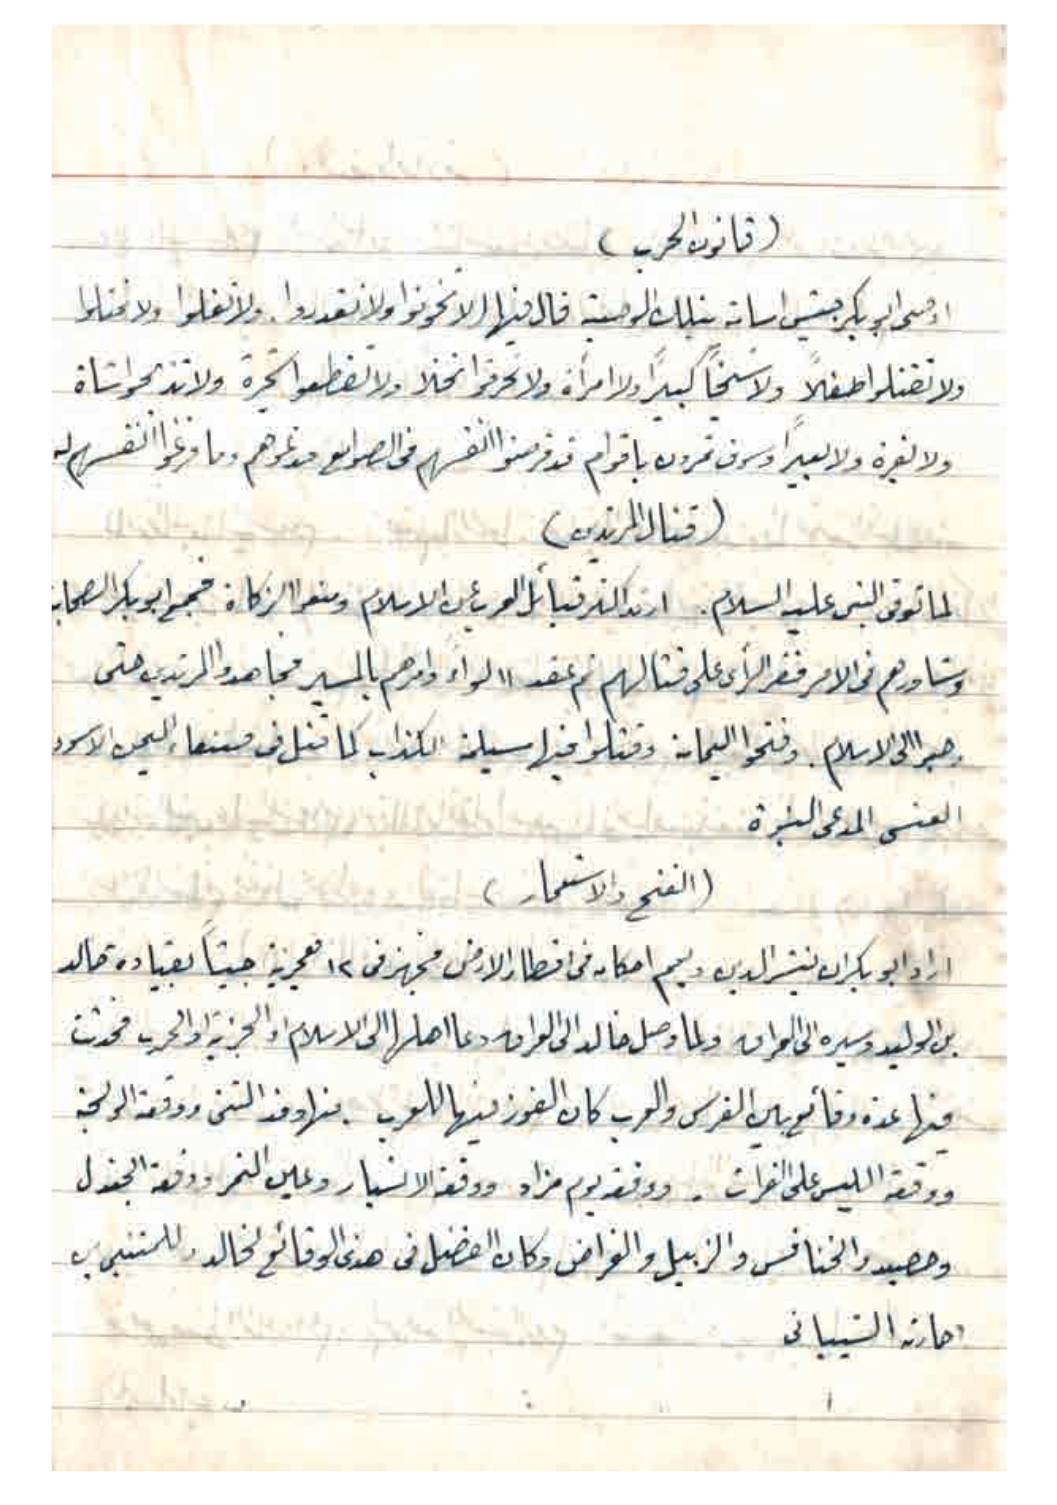 (قانون الحرب)
اوصى ابو بكر جيش اسامة بتلك الوصية قال فيها لا تخونوا ولا تغدروا. ولا تغلوا ولا تمثلوا
ولا تقتلوا طفلاً ولا شيخاً كبيراً ولا امرأة ولا تحرقوا نخلا ولا تقطعوا شجرة ولا تذبحوا شاة
ولا بقرة ولا بعيراً وسوف تمرون باقوام قد فرضوا انفسهم فى الصوامع فدعوهم وما فرغوا انفسهم له
(قتال المرتدين)
لما توفى النبى عليه السلام. ارتد اكثر قبائل العرب عن الاسلام ومنعوا الزكاة فجمع ابو بكر الصحابة
وشاورهم فى الامر فقر الرأى على قتالهم ثم عقد ١١ لواءً وامرهم بالمسير فجاهدوا المرتدين حتى
رجعوا الى الاسلام. وفتحوا اليمامة وقتلوا فيها مسيلمة الكذاب كما قتل فى صنعاء اليمن الاسود
العنسى المدعى النبوة
(الفتح والاستعمار)
اراد ابو بكر ان ينشر الدين ويعمم احكامه فى اقطار الارض فجهز فى ١٢ هجرية جيشاً بقيادة خالد
بن الوليد وسيره الى العراق ولما وصل خالد الى العراق دعا اهلها الى الاسلام او الجزية او الحرب فحدثت
فيها عدة وقائع بين الفرس والعرب كان الفوز فيها للعرب. منها وقعة الثنى ووقعة الولجة
ووقعة الليس على الفرات. ووقعة يوم ووقعة الانبار وعين التمر ووقعة الجندل
وحصيد والخنافس والزبيل والفراض وكان الفضل فى هذه الوقائع لخالد وللمثنى بن
حارثه الشيبانى